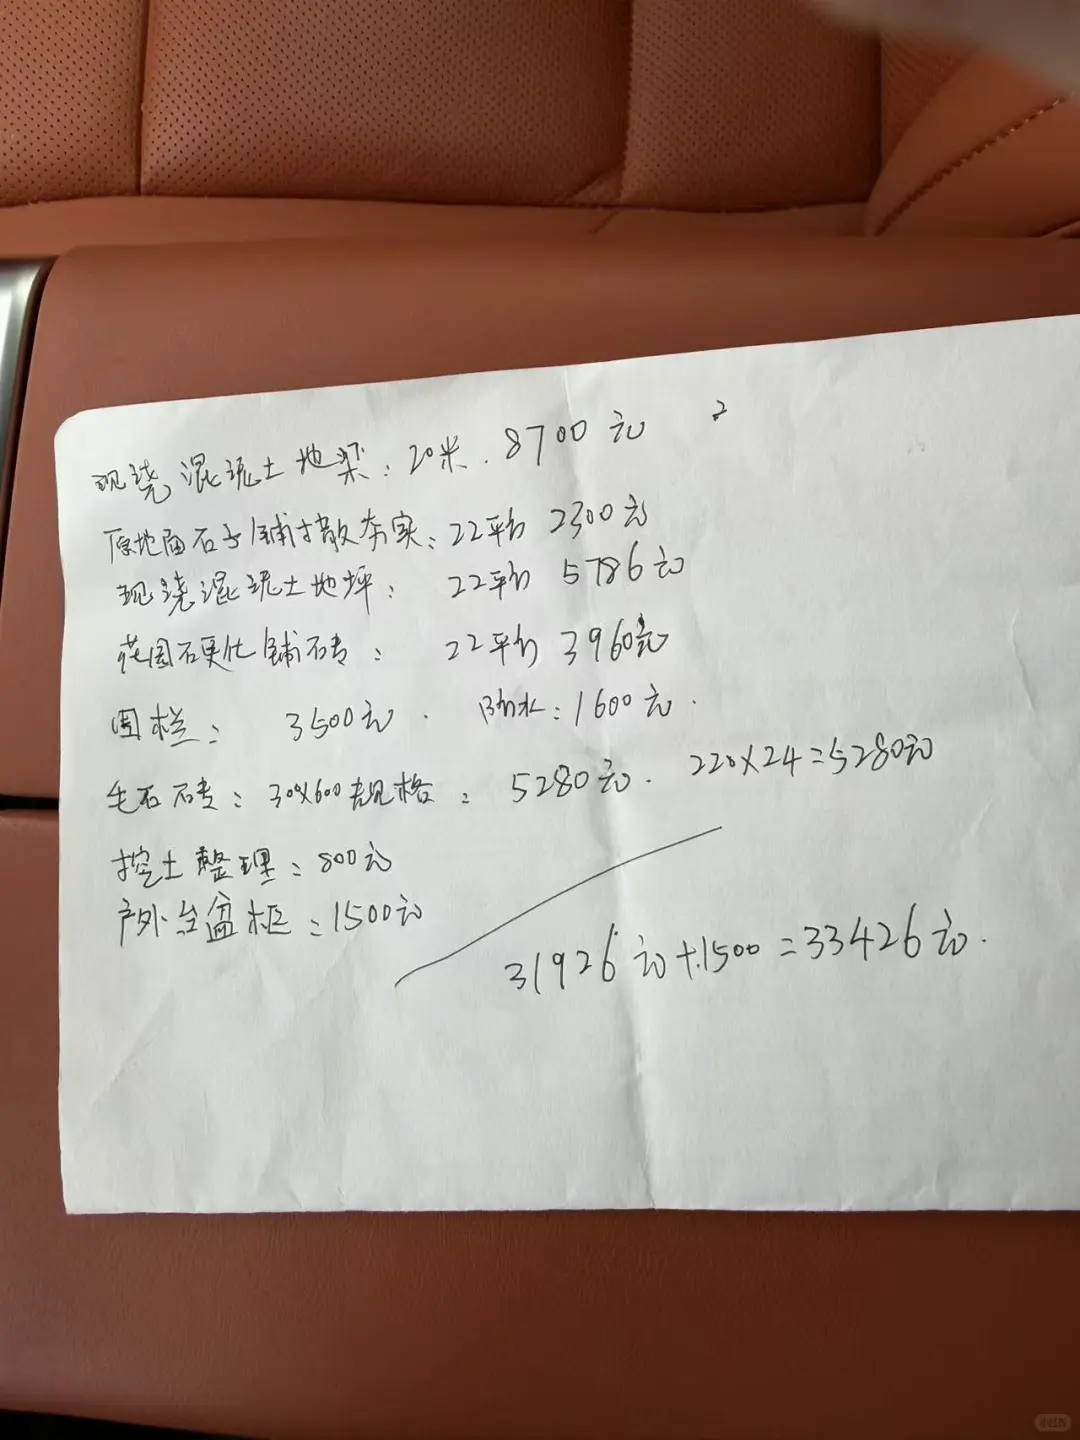 现浇混凝土地梁：20米．8700元
2
原地面石子铺撒夯实：22平方 2300元
现浇混凝土地坪： 22平方 5786元
花园硬化铺砖： 22平方 3960元
围栏： 3500元． 防水：1600元．
毛石砖：300X600规格： 5280元． 220X24=5280元
挖土整理：800元
户外台盆柜：1500元
31926元+1500=33426元．
小红书